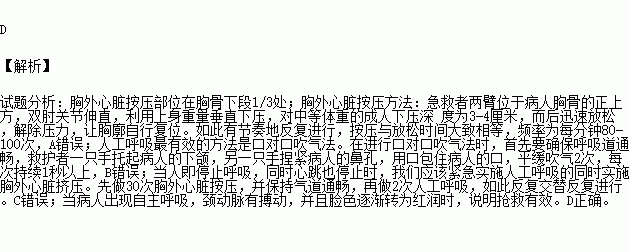 D
【解析】
试题分析：胸外心脏按压部位在胸骨下段1/3处；胸外心脏按压方法：急救者两臂位于病人胸骨的正上
方，双肘关节伸直，利用上身重量垂直下压，对中等体重的成人下压深 度为3-4厘米，而后迅速放松
，解除压力，让胸廓自行复位。如此有节奏地反复进行，按压与放松时间大致相等，频率为每分钟80-
100次，A错误；人工呼吸最有效的方法是口对口吹气法。在进行口对口吹气法时，首先要确保呼吸道通
畅，救护者一只手托起病人的下颌，另一只手捏紧病人的鼻孔，用口包住病人的口，平缓吹气2次，每
次持续1秒以上，B错误；当人即停止呼吸，同时心跳也停止时，我们应该紧急实施人工呼吸的同时实施
胸外心脏挤压。先做30次胸外心脏按压，并保持气道通畅，再做2次人工呼吸，如此反复交替反复进行
。C错误；当病人出现自主呼吸，颈动脉有搏动，并且脸色逐渐转为红润时，说明抢救有效。D正确。